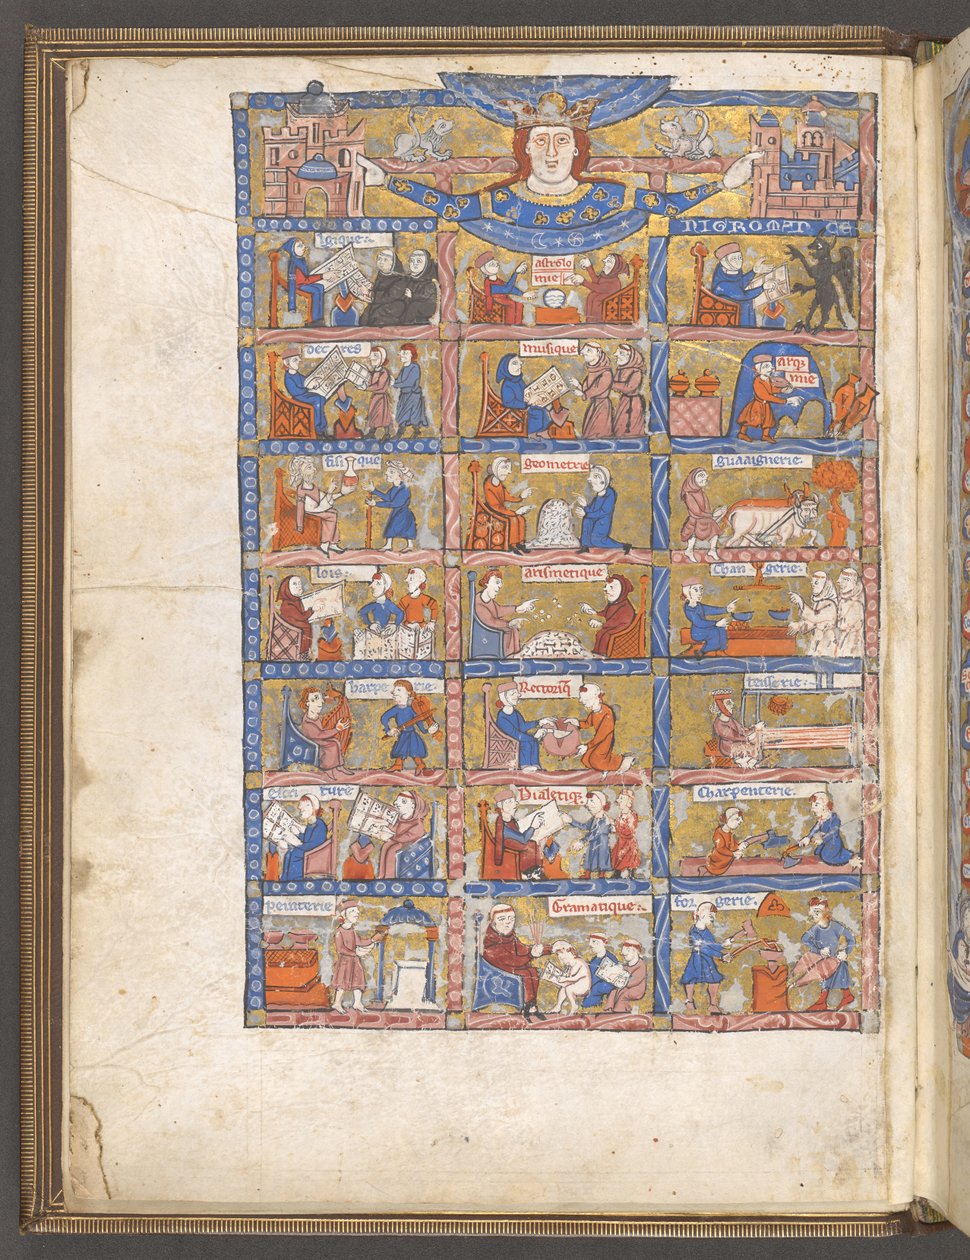 NIGROMANCE
logique.
astrolo
mie
decrees
musique
arqe
mie
fisique
geometrie
guaaignerie.
lois.
arismetique
Changerie.
harperie.
Rectoriq
teisserie.
escriture
Dialetiq;
Charpenterie.
peinterie
Gramatique.
forgerie.